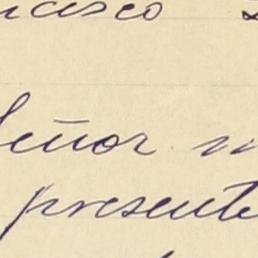 ncisco
Señor m
presente